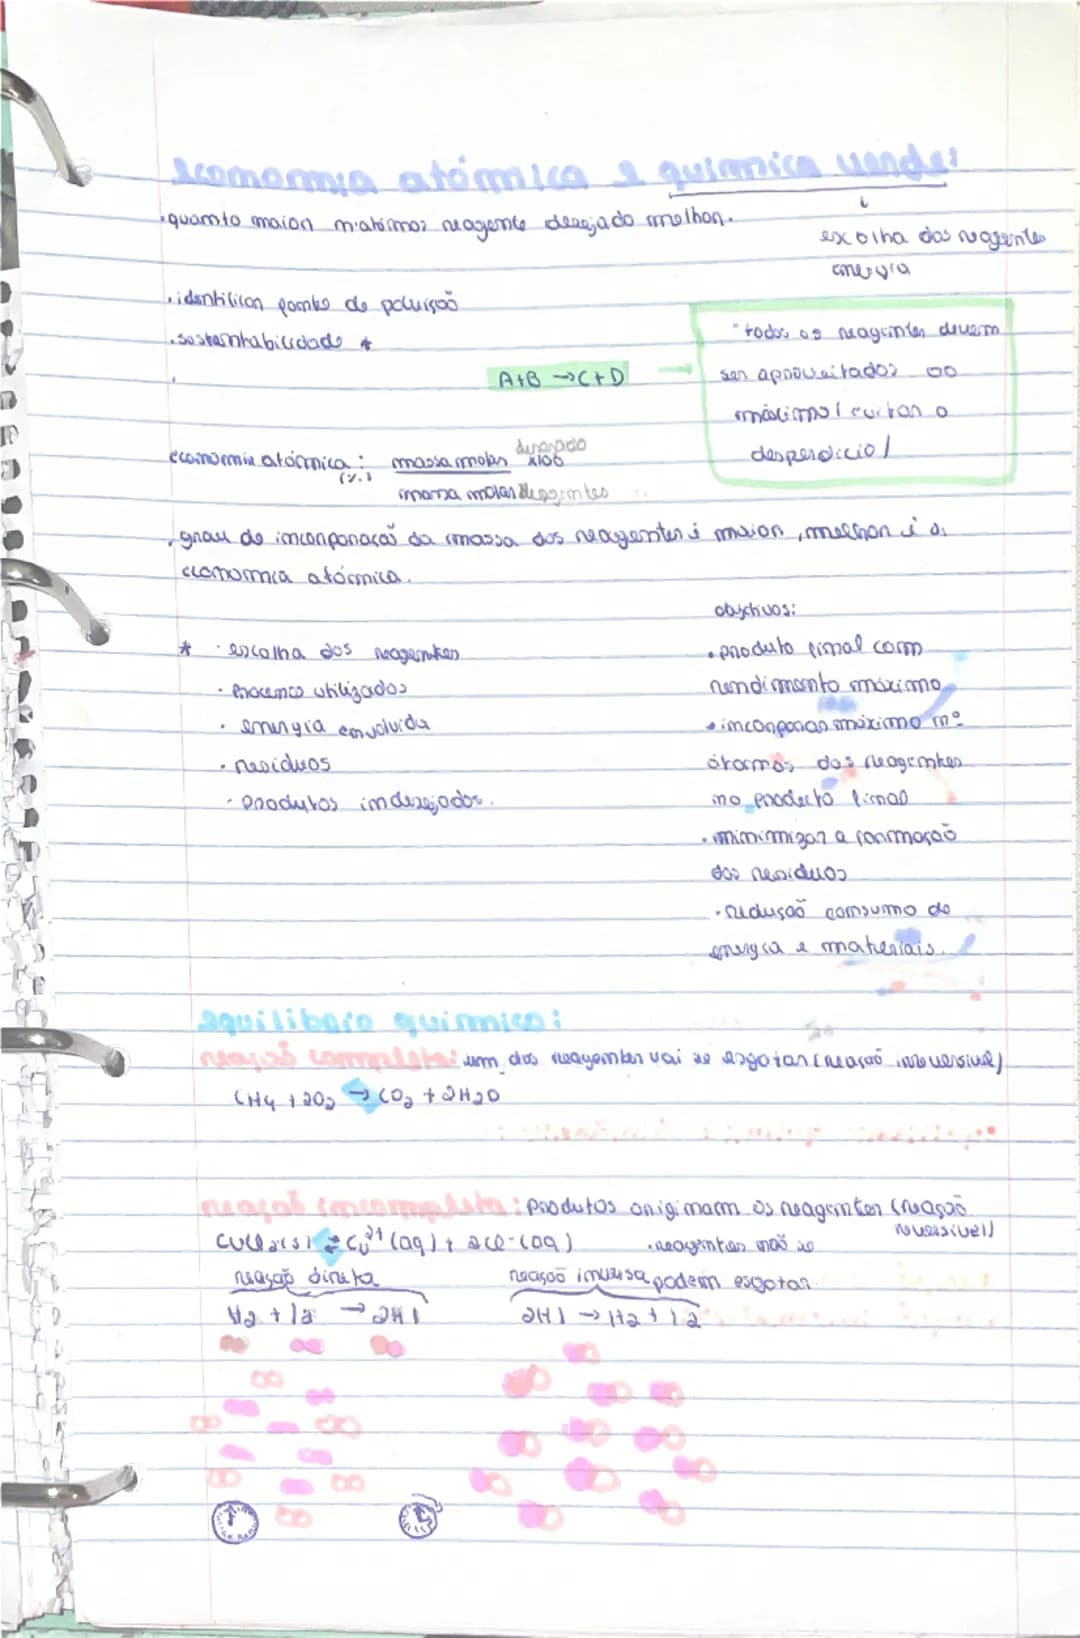 economia atómica e química verde:
• quanto maior n átomos reagente desejado melhor.
escolha dos reagentes
energia
• identificar fonte de poluição
• sustentabilidade *
A+B → C+D
"todos os reagentes devem
ser aproveitados ao
máximo / evitar o
desperdício /
economia atómica : massa molar desejado x100
(%)
massa molar reagentes
• grau de incorporação da massa dos reagentes é maior, melhor é a
economia atómica.
* · escolha dos reagentes
· Processo utilizados
· energia envolvida
· resíduos
· produtos indesejados.
objetivos:
• produto final com
rendimento máximo
• incorporar máximo nº
átomos dos reagentes
no producto final
• minimizar a formação
dos resíduos
• redução consumo de
energia e materiais.
equilíbrio químico:
reação completa: um dos reagentes vai se esgotar (reação irreversível)
CH4 + 2O2 → CO2 + 2H2O
reação incompleta: produtos originam os reagentes (reação
reversível)
CuCl2(s) ⇌ Cu²⁺(aq) + 2Cl⁻(aq)
• reagentes não se
podem esgotar.
reação direta
reação inversa
H2 + I2 → 2HI
2HI → H2 + I2